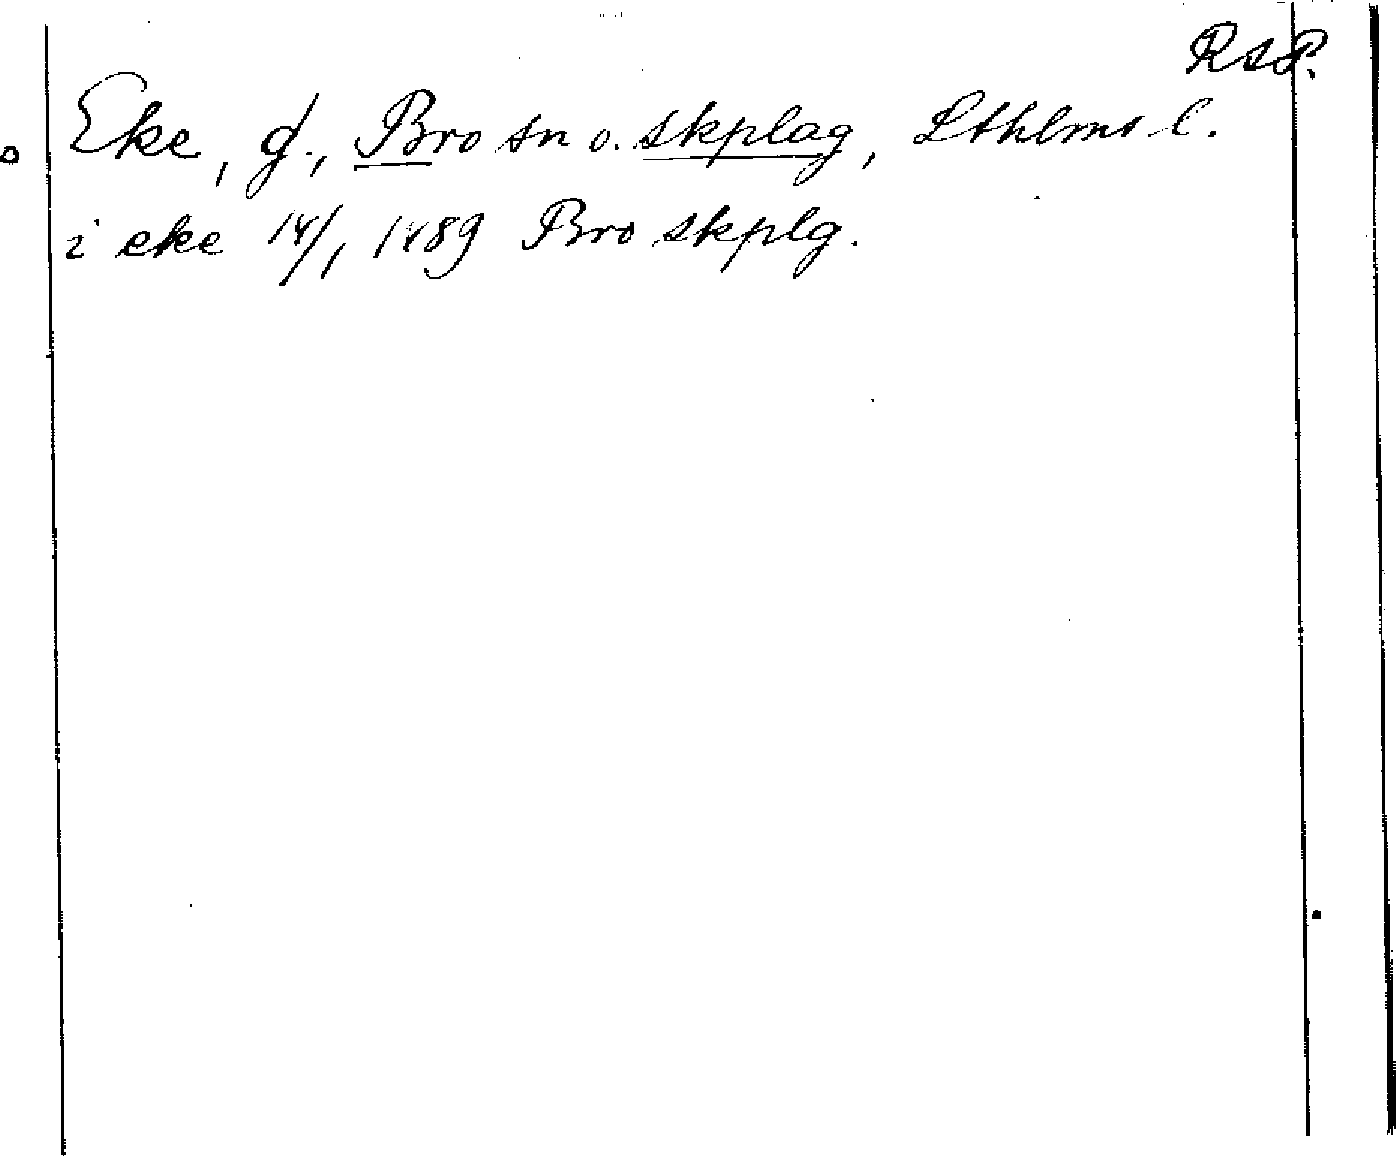 RAP.
Eke, g., Bro sn o. skplag, Sthlms l.
i eke 14/1 1489 Bro skplg.